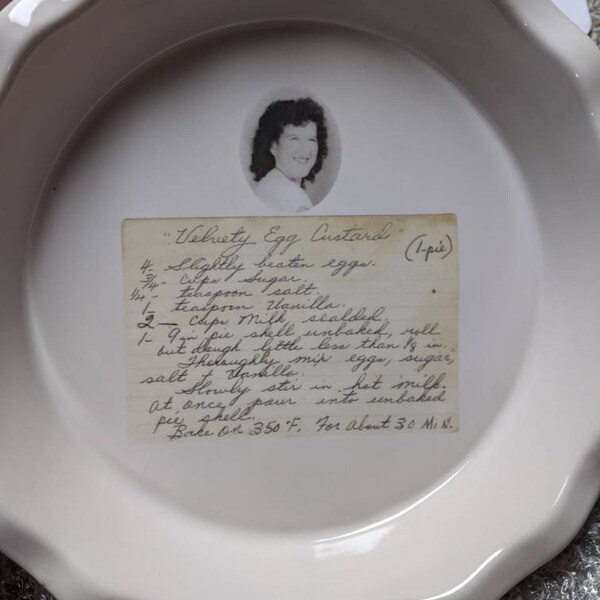 "Velvety Egg Custard" (1-pie)
4- Slightly beaten eggs.
3/4- Cups Sugar.
1/4- teaspoon salt.
1- teaspoon Vanilla.
2 — Cups Milk, scalded.
1- 9 in pie shell unbaked, roll
out dough little less than 1/8 in.
Thoroughly mix eggs, sugar,
salt + Vanilla.
Slowly stir in hot milk.
At once pour into unbaked
pie shell.
Bake on 350°F. For About 30 Min.